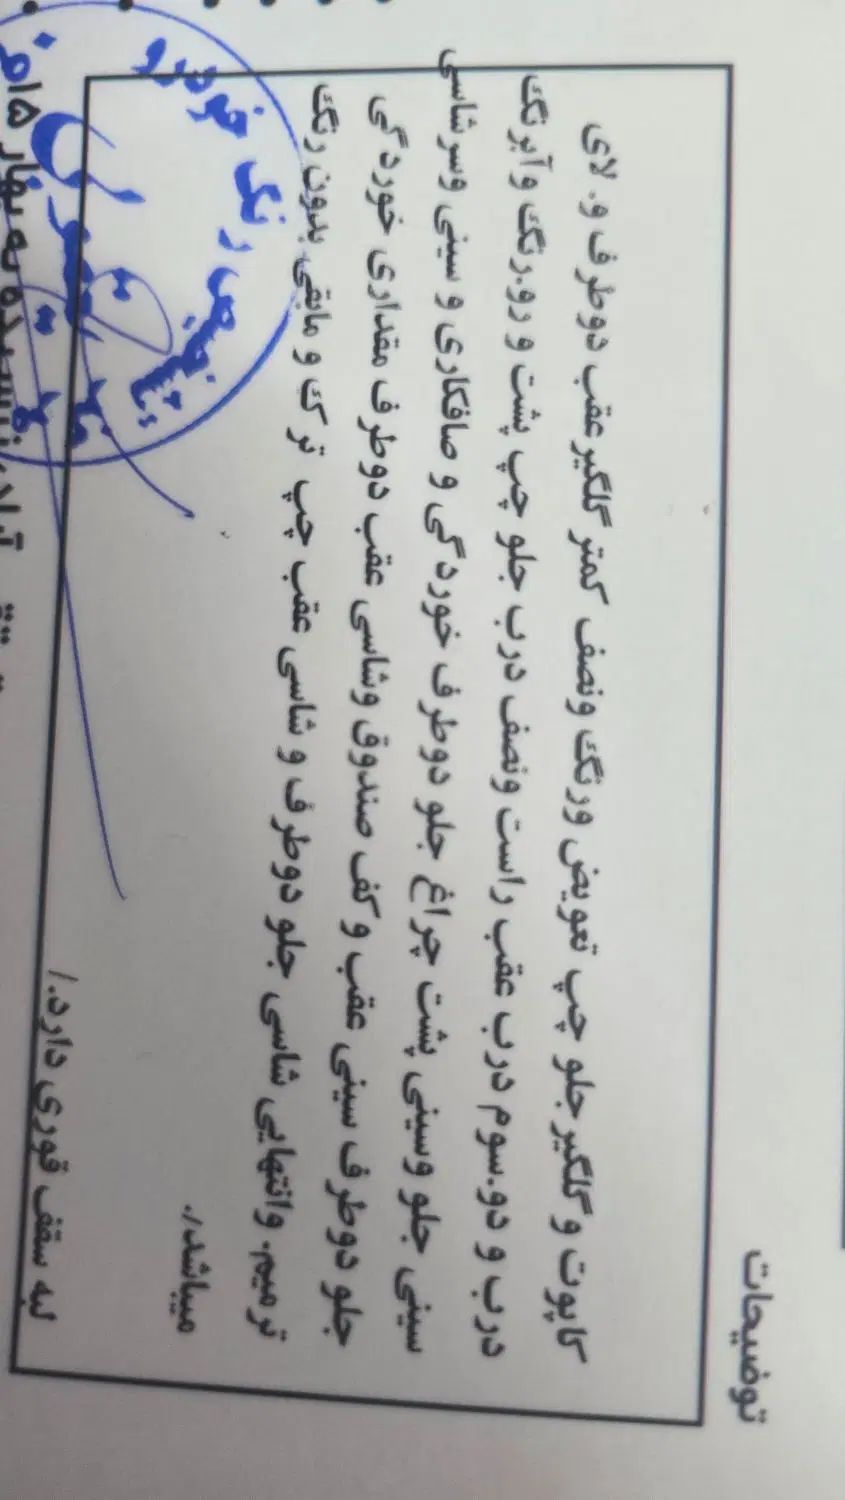 توضیحات
کاپوت و گلگیر جلو چپ تعویض ورنگ ونصف کمتر گلگیر عقب دوطرف و. لای
درب و دو.سوم درب عقب راست ونصف درب جلو چپ پشت و رو.رنگ وآبرنگ
سینی جلو وسینی پشت چراغ جلو دوطرف خوردگی و صافکاری و سینی وسرشاسی
جلو دوطرف سینی عقب و کف صندوق وشاسی عقب دوطرف مقداری خوردگی
ترمیم. وانتهایی شاسی جلو دوطرف و شاسی عقب چپ ترک و مابقی بدون رنگ
میباشد/.
لبه سقف قوری دارد./
تشخیص رنگ خودرو